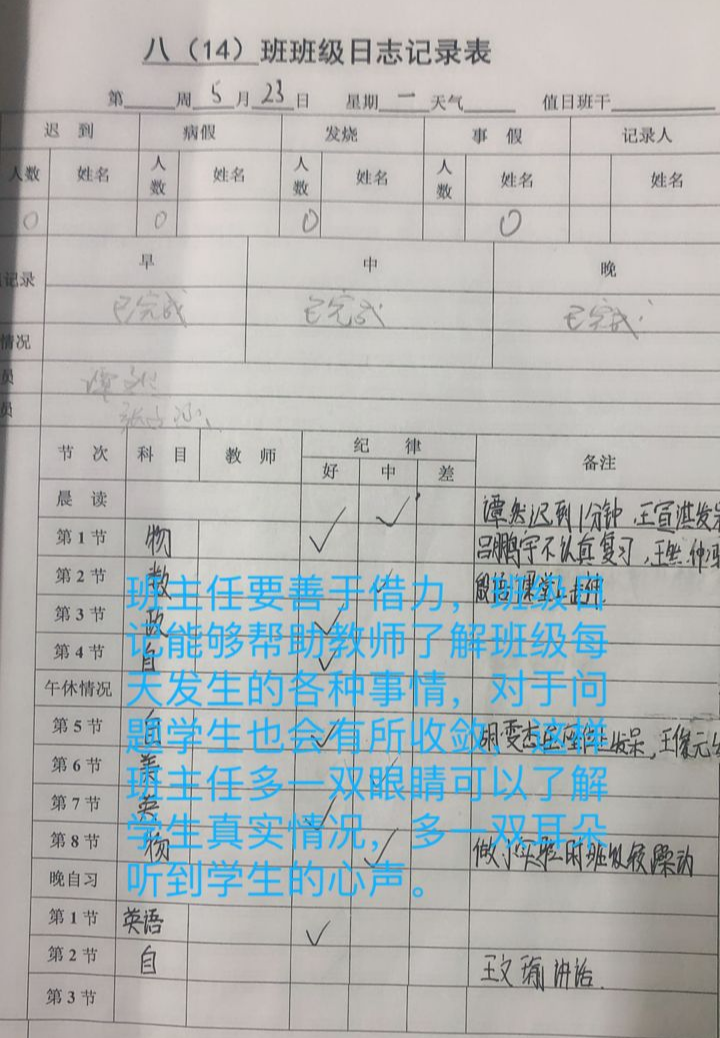 八（14）班班级日志记录表
第 周 5 月 23 日 星期 一 天气 值日班干
迟 到 病假 发烧 事 假 记录人
人数 姓名 人数 姓名 人数 姓名 人数 姓名 姓名
0 0 0 0
记录 早 中 晚
已完成 已完成 已完成
情况
员
员
节 次 科 目 教 师 纪 律 备注
好 中 差
晨 读 ✓ 迟到1分钟，王宣淇发
第 1 节 物 ✓ 吕鹏宇不认真复习，王
第 2 节 数 ✓ 课堂上
第 3 节 政 ✓
第 4 节 自 ✓
午休情况
第 5 节 自 ✓ 在座位上发呆，王俊元
第 6 节 美 ✓
第 7 节 英 ✓
第 8 节 物 ✓ 做了实验时班级较躁动
晚自习
第 1 节 英语 ✓
第 2 节 自 王文瑜讲话.
第 3 节
班主任要善于借力，班级日
记能够帮助教师了解班级每
天发生的各种事情，对于问
题学生也会有所收敛，这样
班主任多一双眼睛可以了解
学生真实情况，多一双耳朵
听到学生的心声。